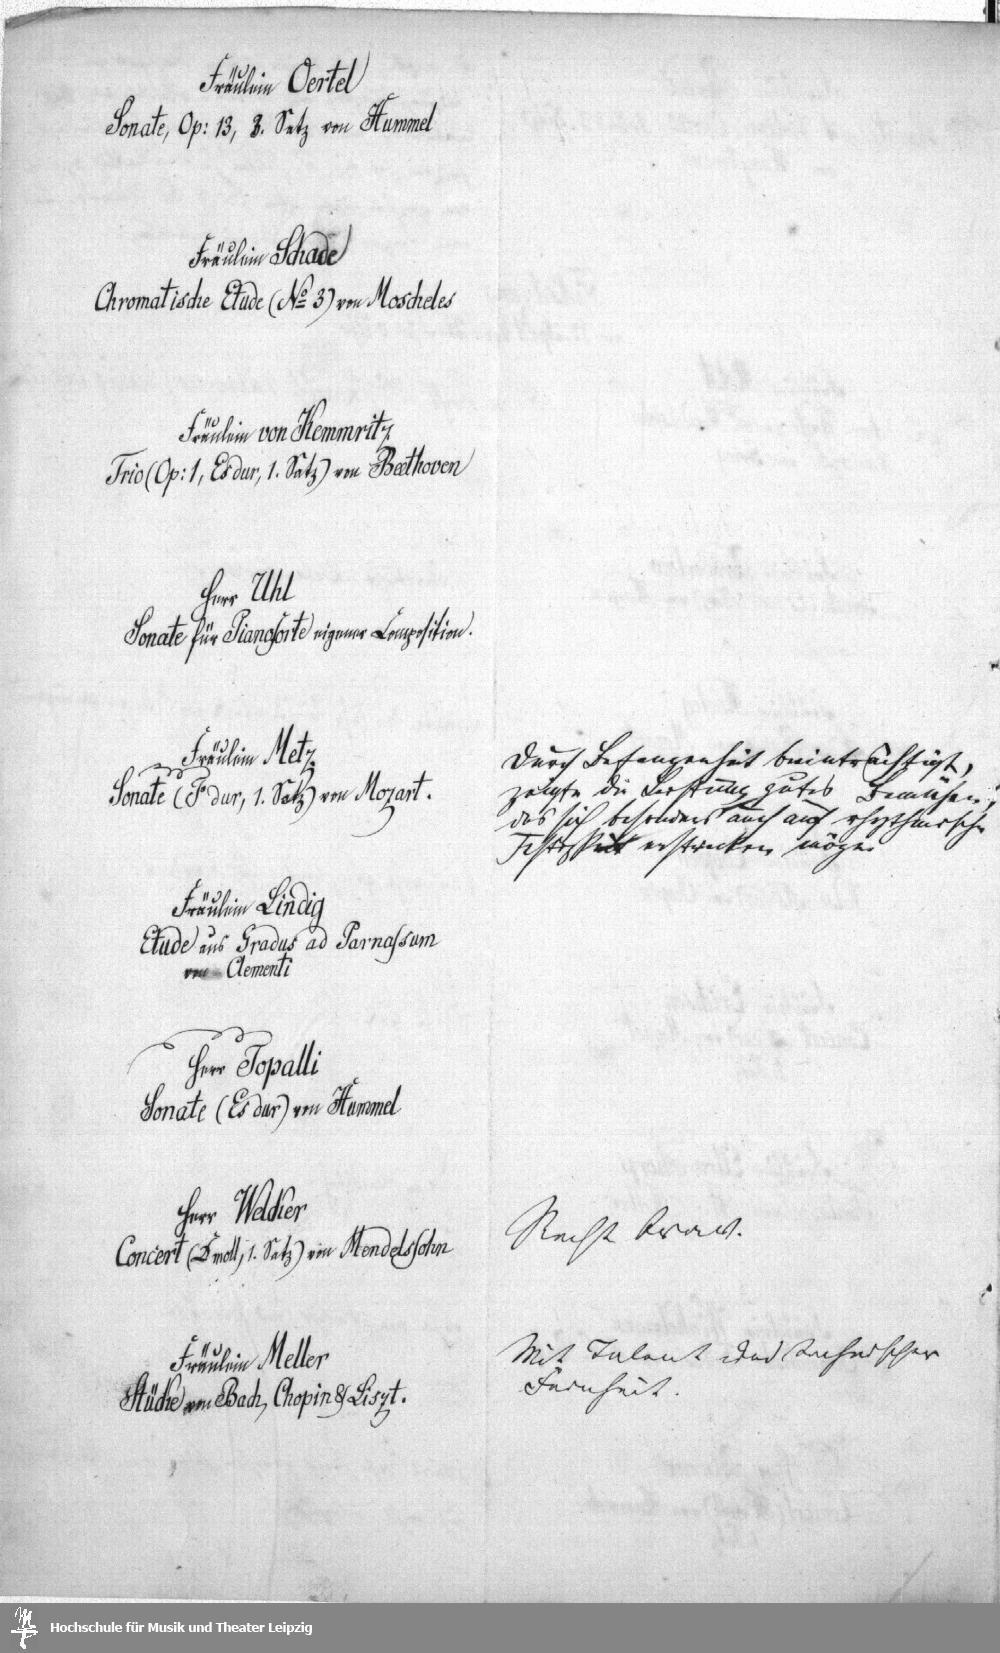 Fräulein Oertel
Sonate, Op: 13, 3. Satz von Hummel
Fräulein Schade
Chromatische Etude (No 3) von Moscheles
Fräulein von Kemmritz
Trio (Op: 1, Es dur, 1. Satz) von Beethoven
Herr Uhl
Sonate für Pianoforte eigener Composition.
Fräulein Metz.
Sonate (F dur, 1. Satz) von Mozart.
Durch Befangenheit beinträchtigt,
zeigte die Leistung gutes Bemühen,
das sich besonders auch auf rhythmische
Festigkeit erstrecken möge
Fräulein Lindig
Etude aus Gradus ad Parnassum
von Clementi
Herr Topalli
Sonate (Es dur) von Hummel
Herr Welcker
Concert (D moll, 1. Satz) von Mendelssohn
Recht brav.
Fräulein Meller
Stücke von Bach, Chopin & Liszt.
Mit Talent und technischer
Feinheit.
Hochschule für Musik und Theater Leipzig